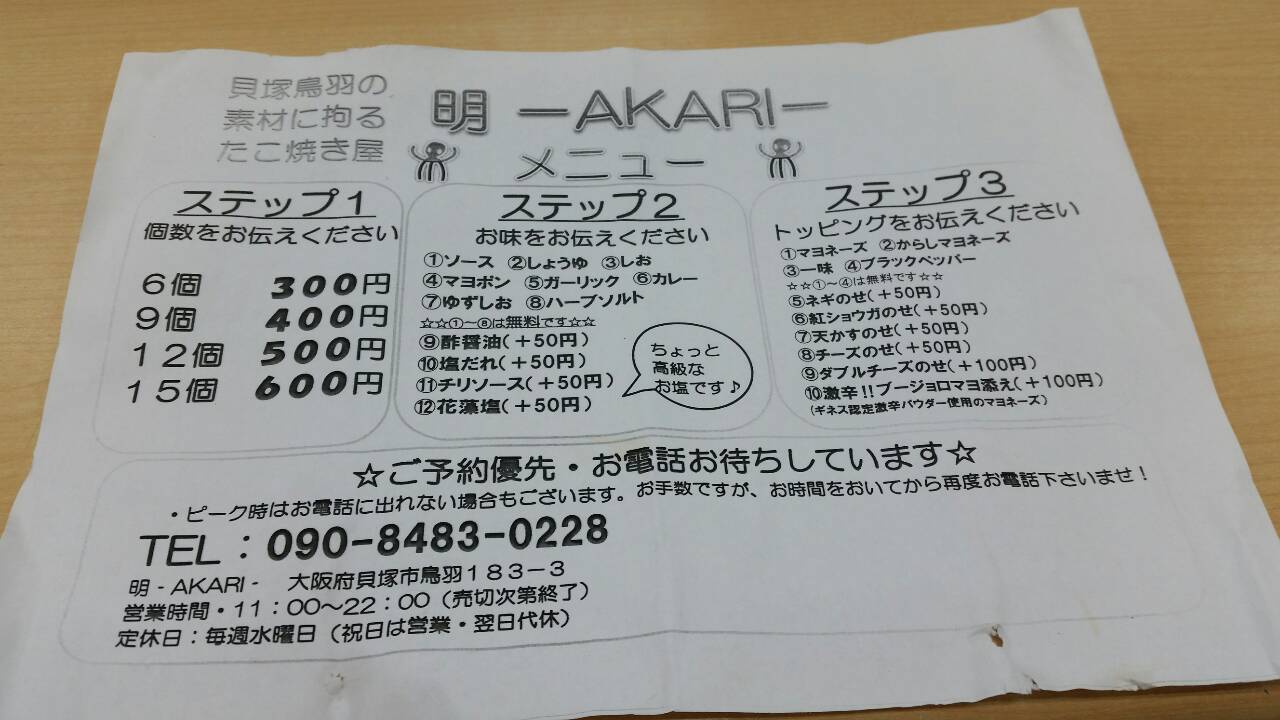 貝塚鳥羽の
素材に拘る
たこ焼き屋
明 －AKARI－
メニュー
ステップ１
個数をお伝えください
６個 300円
９個 400円
１２個 500円
１５個 600円
ステップ２
お味をお伝えください
①ソース ②しょうゆ ③しお
④マヨポン ⑤ガーリック ⑥カレー
⑦ゆずしお ⑧ハーブソルト
☆☆①～⑧は無料です☆☆
⑨酢醤油(＋50円)
⑩塩だれ(＋50円)
⑪チリソース(＋50円)
⑫花藻塩(＋50円)
ちょっと
高級な
お塩です♪
ステップ３
トッピングをお伝えください
①マヨネーズ ②からしマヨネーズ
③一味 ④ブラックペッパー
☆☆①～④は無料です☆☆
⑤ネギのせ(＋50円)
⑥紅ショウガのせ(＋50円)
⑦天かすのせ(＋50円)
⑧チーズのせ(＋50円)
⑨ダブルチーズのせ(＋100円)
⑩激辛!!ブージョロマヨ添え(＋100円)
(ギネス認定激辛パウダー使用のマヨネーズ)
☆ご予約優先・お電話お待ちしています☆
・ピーク時はお電話に出れない場合もございます。お手数ですが、お時間をおいてから再度お電話下さいませ！
TEL：090-8483-0228
明 - AKARI - 大阪府貝塚市鳥羽１８３－３
営業時間・11：00～22：00（売切次第終了）
定休日：毎週水曜日（祝日は営業・翌日代休）